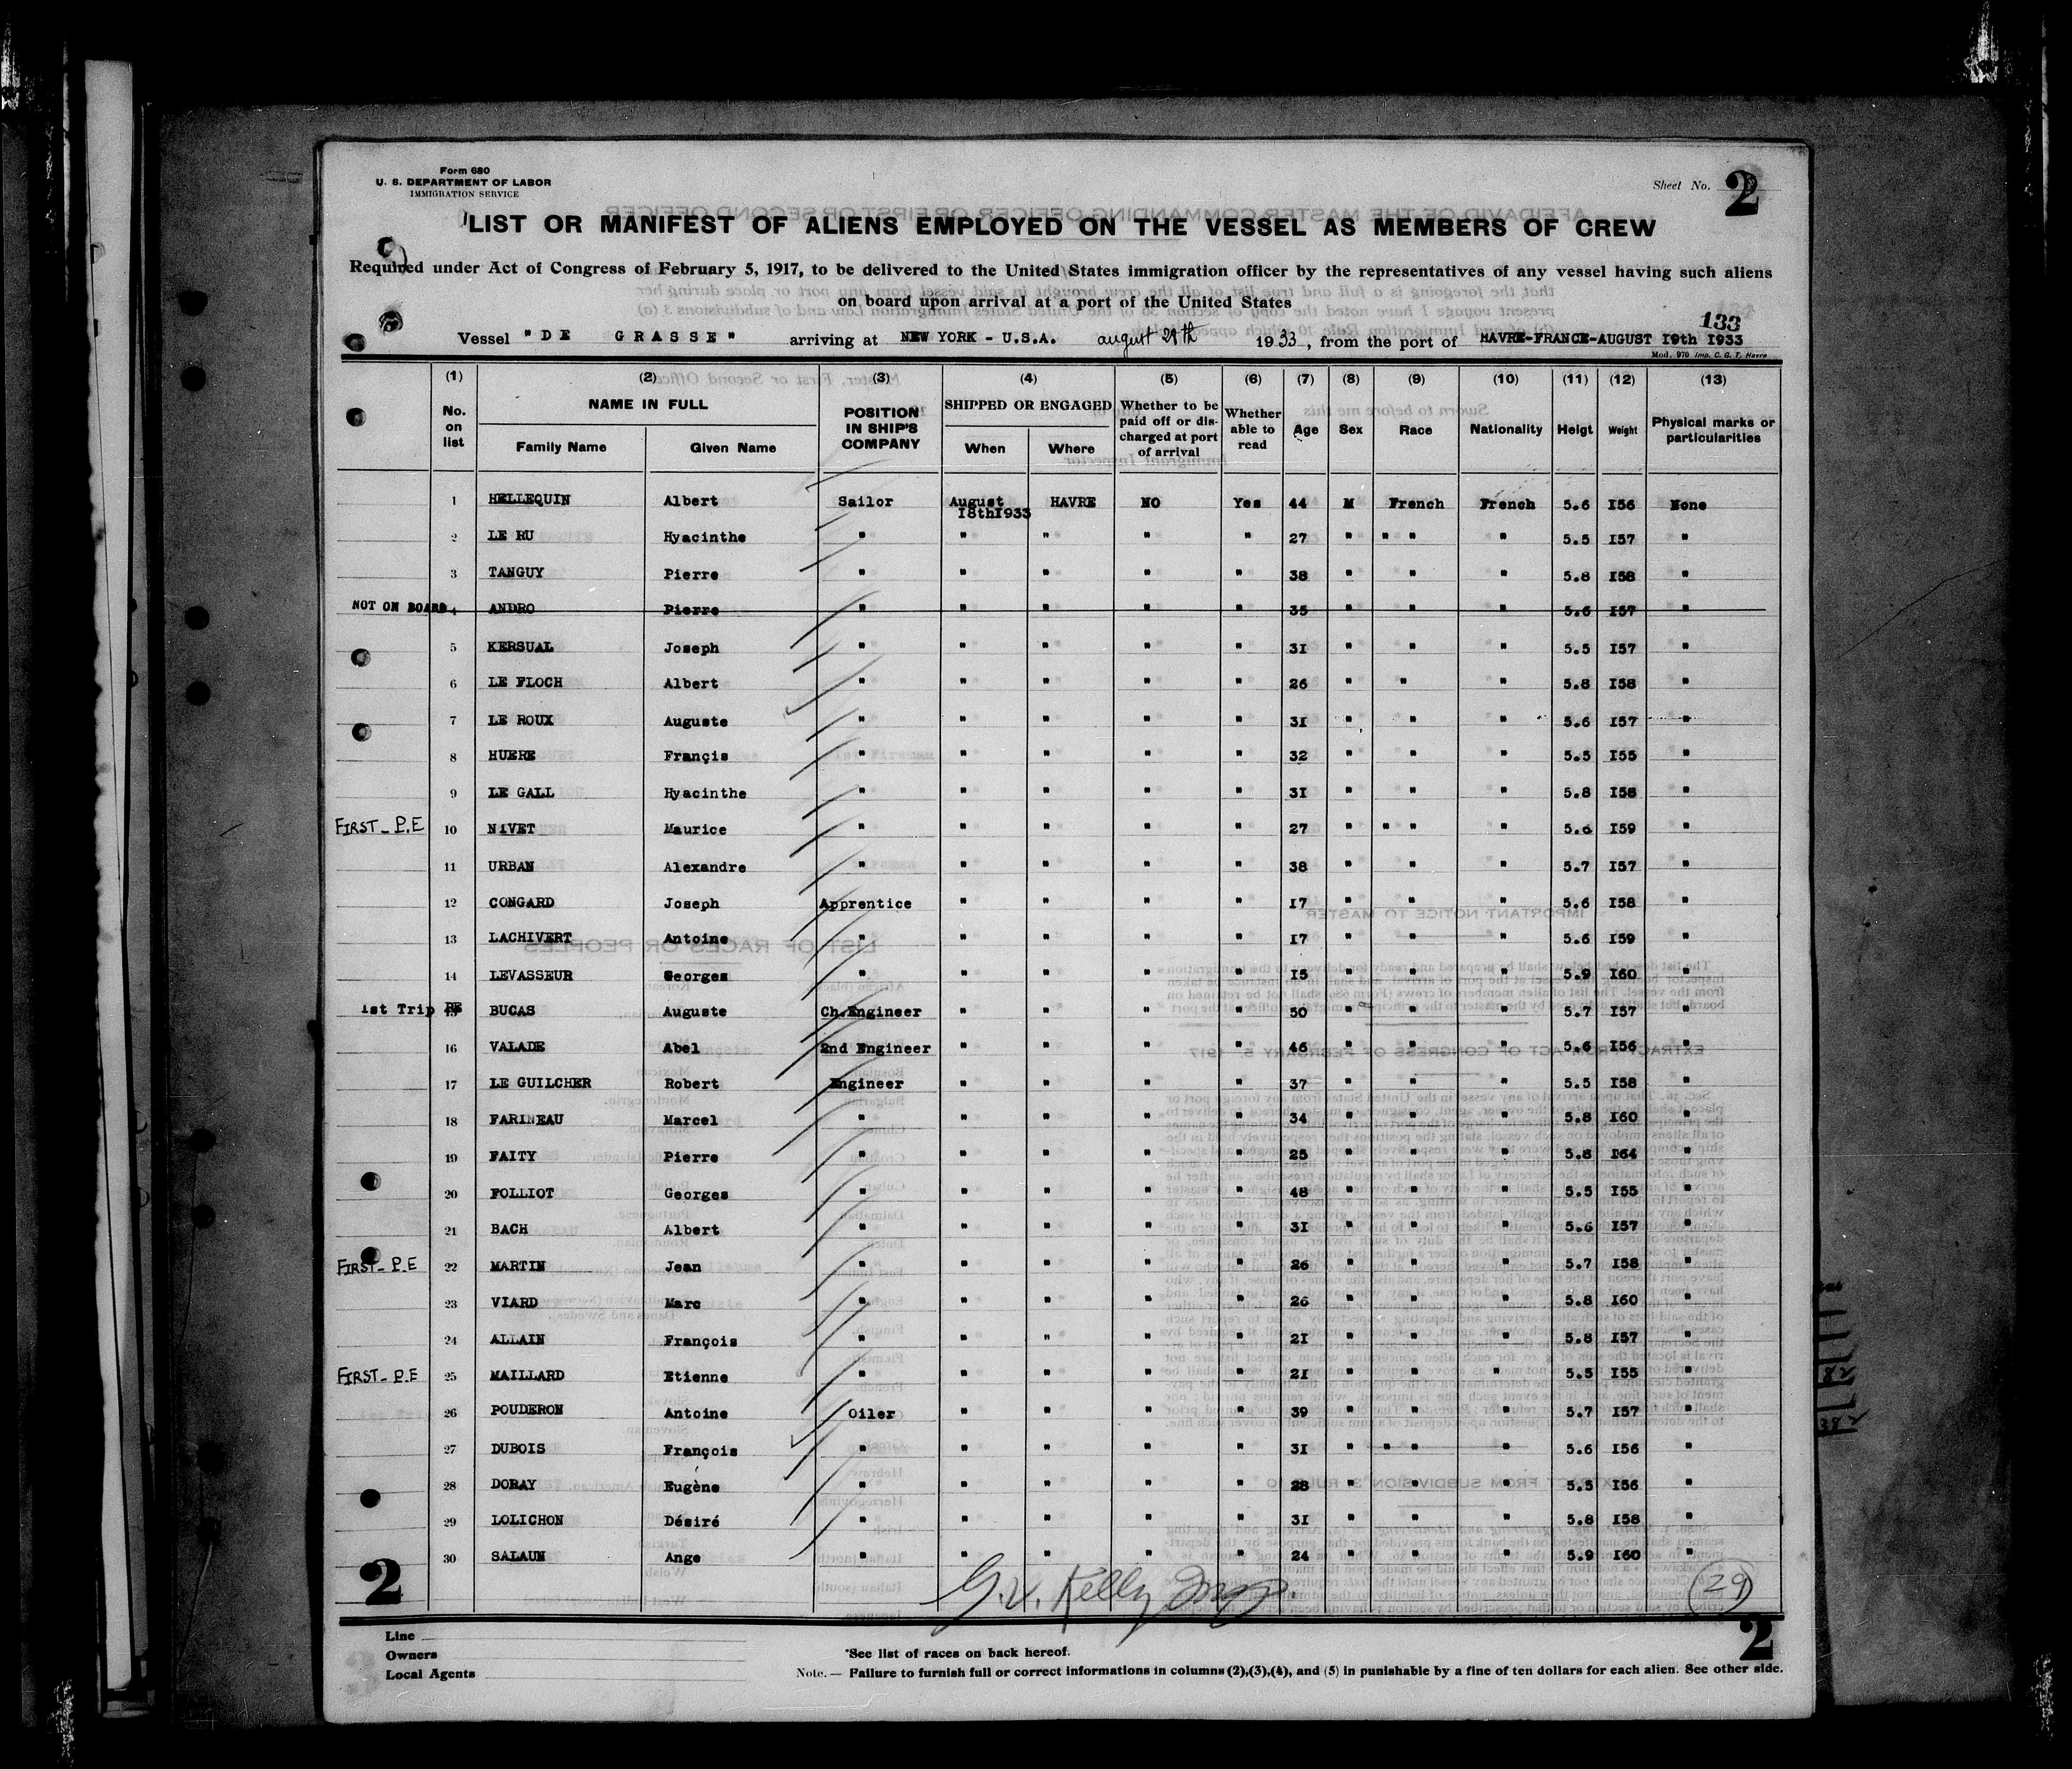 Form 680
U. S. DEPARTMENT OF LABOR
IMMIGRATION SERVICE
Sheet No. 2
LIST OR MANIFEST OF ALIENS EMPLOYED ON THE VESSEL AS MEMBERS OF CREW
Required under Act of Congress of February 5, 1917, to be delivered to the United States immigration officer by the representatives of any vessel having such aliens
on board upon arrival at a port of the United States
133
Vessel "DE GRASSE" arriving at NEW YORK - U.S.A. august 29th 1933, from the port of HAVRE-FRANCE-AUGUST I9th I933
Mod. 970 Imp. C. G. T. Havre
(1) (2) (3) (4) (5) (6) (7) (8) (9) (10) (11) (12) (13)
No. on list NAME IN FULL Family Name Given Name POSITION IN SHIP'S COMPANY SHIPPED OR ENGAGED When Where Whether to be paid off or discharged at port of arrival Whether able to read Age Sex Race Nationality Heigt Weight Physical marks or particularities
1 HELLEQUIN Albert Sailor August I8thI933 HAVRE NO Yes 44 M French French 5.6 I56 None
2 LE RU Hyacinthe " " " " " 27 " " " " 5.5 I57 "
3 TANGUY Pierre " " " " " 38 " " " 5.8 I58 "
NOT ON BOARD 4 ANDRO Pierre " " " " " 35 " " " 5.6 I57 "
5 KERSUAL Joseph " " " " " 3I " " " 5.5 I57 "
6 LE FLOCH Albert " " " " " 26 " " " 5.8 I58 "
7 LE ROUX Auguste " " " " " 3I " " " 5.6 I57 "
8 HUERE Françis " " " " " 32 " " " 5.5 I55 "
9 LE GALL Hyacinthe " " " " " 3I " " " 5.8 I58 "
FIRST - P.E 10 NIVET Maurice " " " " " 27 " " " " 5.6 I59 "
11 URBAN Alexandre " " " " " 38 " " " 5.7 I57 "
12 CONGARD Joseph Apprentice " " " " I7 " " " 5.6 I58 "
13 LACHIVERT Antoine " " " " " I7 " " " 5.6 I59 "
14 LEVASSEUR Georges " " " " " I5 " " " 5.9 I60 "
1st Trip PE 15 BUCAS Auguste Ch.Engineer " " " " 50 " " " 5.7 I57 "
16 VALADE Abel 2nd Engineer " " " " 46 " " " 5.6 I56 "
17 LE GUILCHER Robert Engineer " " " " 37 " " " 5.5 I58 "
18 FARINEAU Marcel " " " " " 34 " " " 5.8 I60 "
19 FAITY Pierre " " " " " 25 " " " 5.8 I64 "
20 FOLLIOT Georges " " " " " 48 " " " 5.5 I55 "
21 BACH Albert " " " " " 3I " " " 5.6 I57 "
FIRST - P.E 22 MARTIN Jean " " " " " 26 " " " 5.7 I58 "
23 VIARD Marc " " " " " 26 " " " 5.8 I60 "
24 ALLAIN François " " " " " 2I " " " 5.8 I57 "
FIRST - P.E 25 MAILLARD Etienne " " " " " 2I " " " 5.5 I55 "
26 POUDERON Antoine Oiler " " " " 39 " " " 5.7 I57 "
27 DUBOIS François " " " " " 3I " " " " 5.6 I56 "
28 DORAY Eugène " " " " " 28 " " " 5.5 I56 "
29 LOLICHON Désiré " " " " " 3I " " " 5.8 I58 "
30 SALAUN Ange " " " " " 24 " " " 5.9 I60 "
2 G.V. Kelly Insp. 29
Line
Owners
Local Agents
2
*See list of races on back hereof.
Note. — Failure to furnish full or correct informations in columns (2),(3),(4), and (5) in punishable by a fine of ten dollars for each alien. See other side.